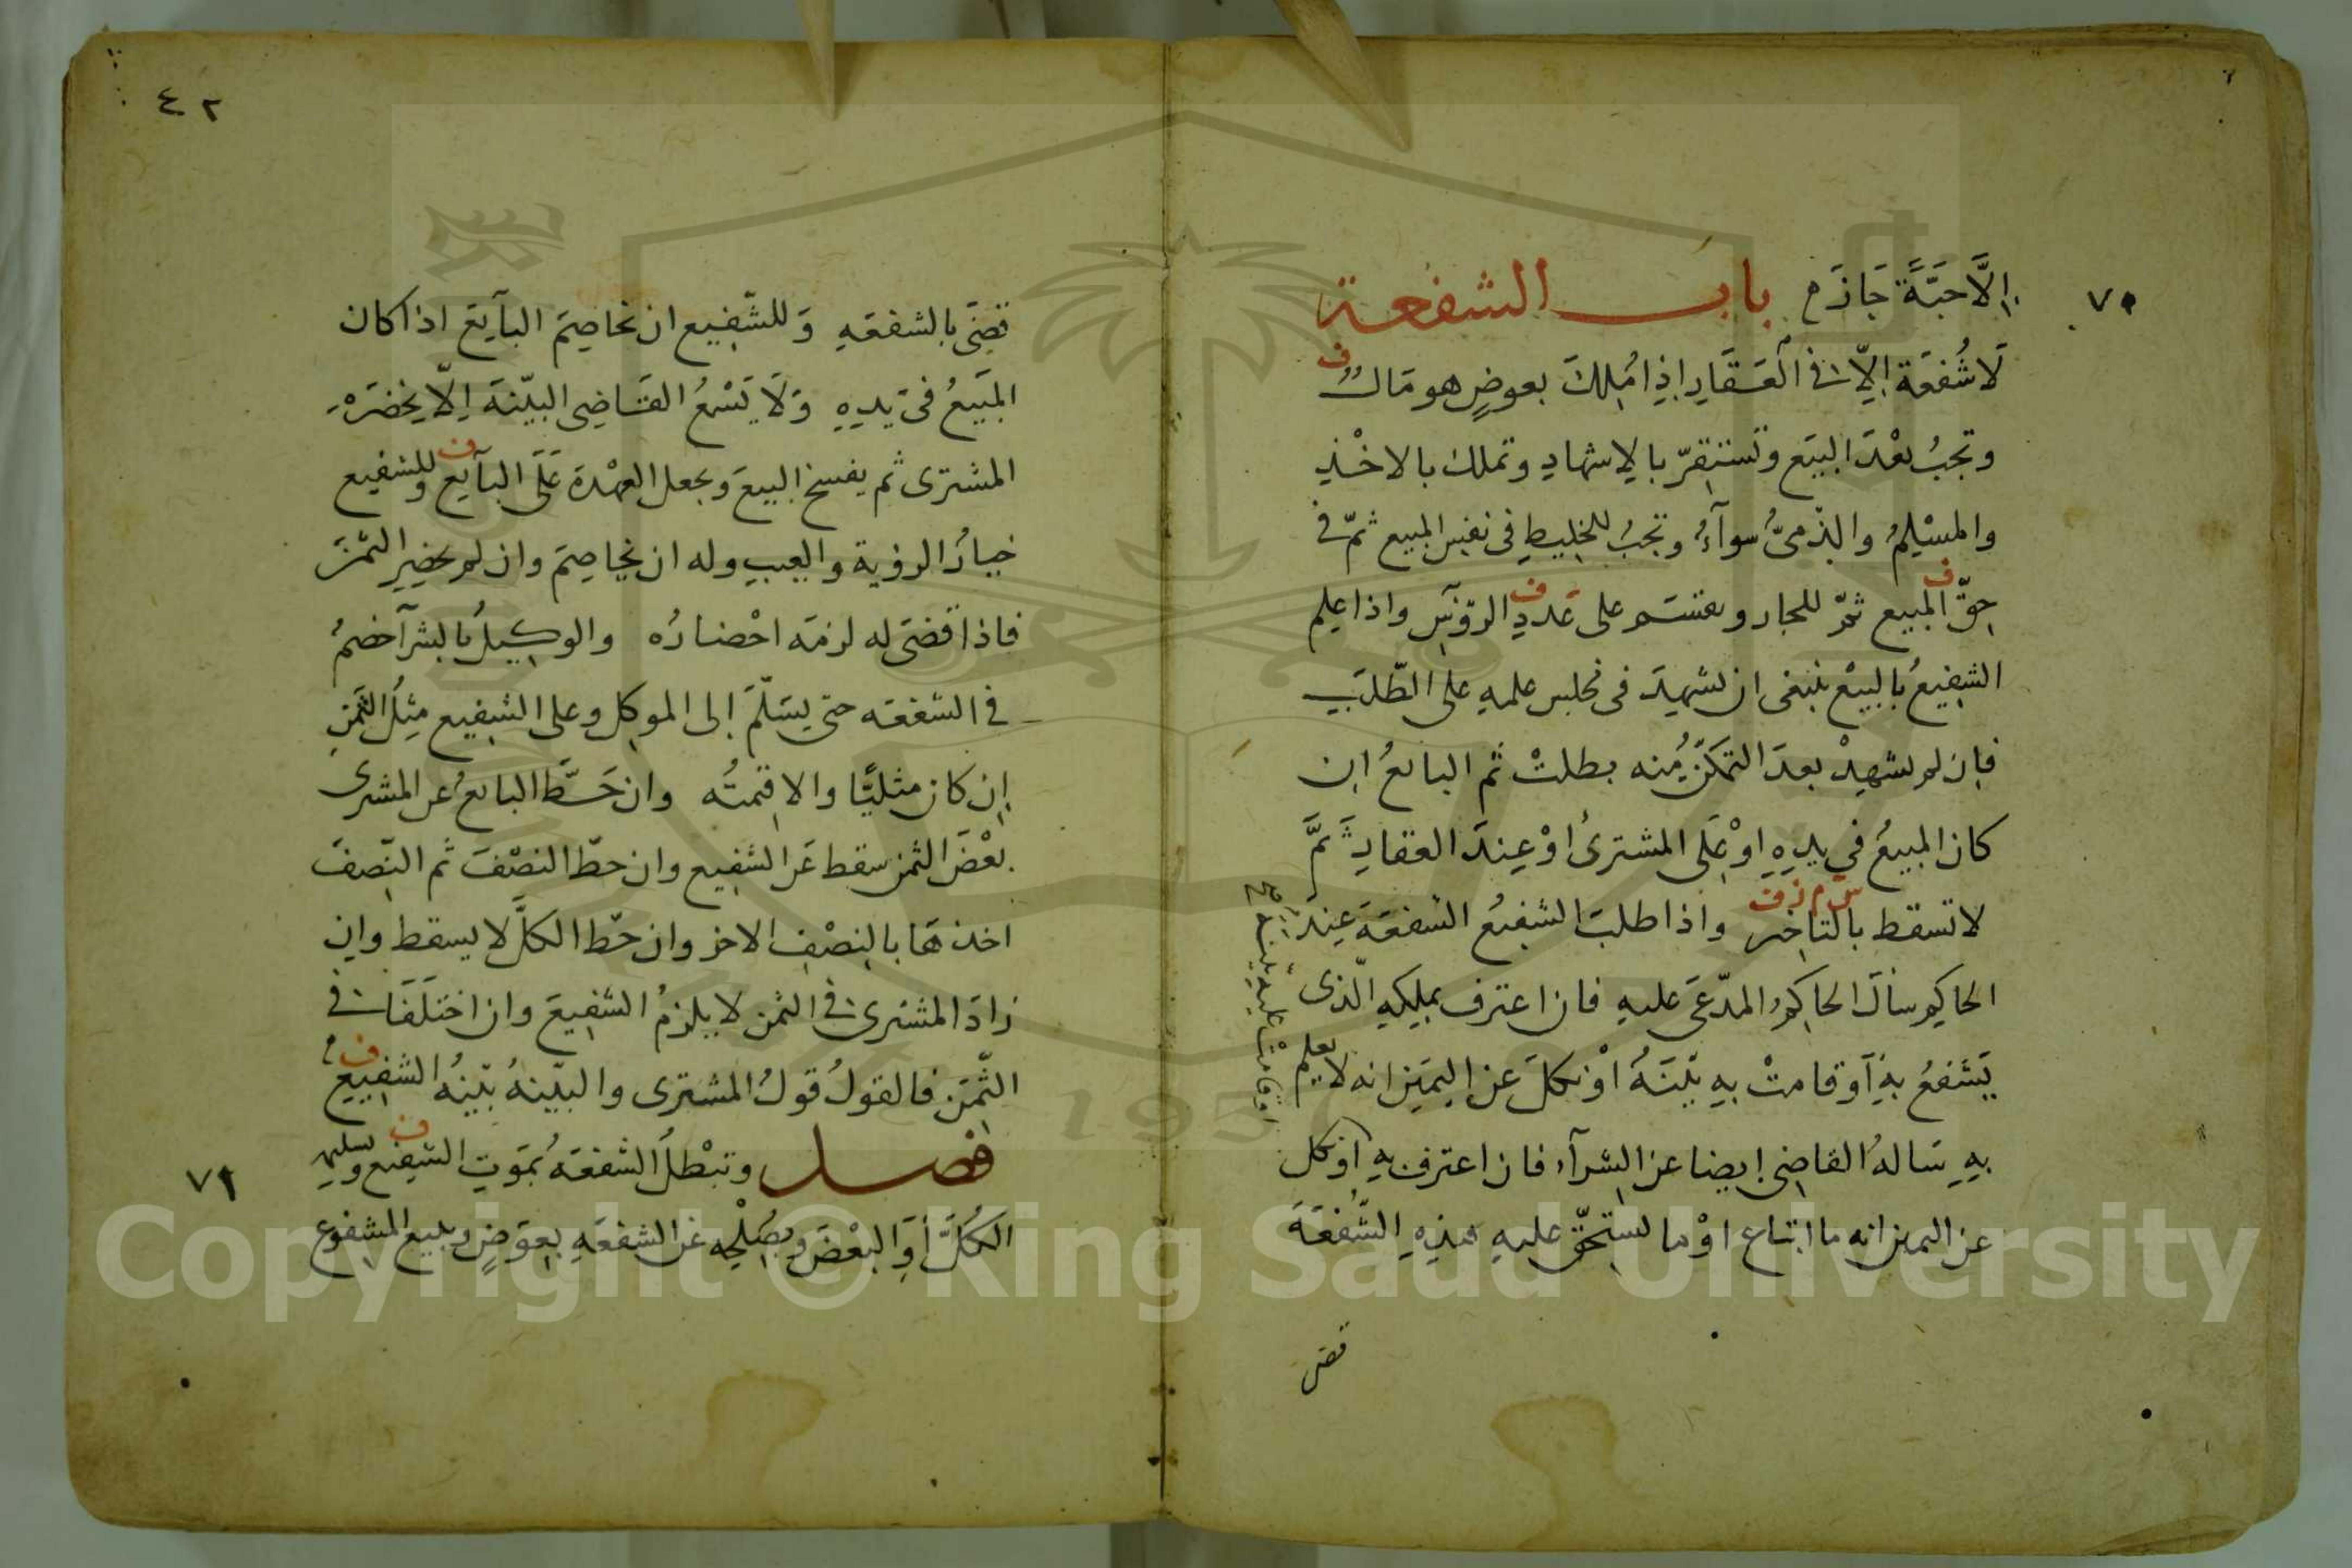 ٧٠
إلَّا حَبَّةً جَازَ م باب الشفعة
لَا شُفعَة إلّا في العَقَارِ اِذا مُلِكَ بعوضٍ هو مَالٌ ف
وتجبُ بعْدَ البيَع وتَستقِرّ بالاِشهادِ وتملك بالاخْذِ
والمسْلِمُ والذّمىُّ سوآءٌ وتجبُ للخليطِ فى نفس المبيع ثمّ في
حقّ المبيع ف ثمّ للجار وتقسَم على عَددِ ف الرّؤسِ واذا علِم
الشفيعُ بالبيعْ ينبغى ان يشهِدَ فى مجلس علمهِ على الطّلَبِ
فاِن لم يشهِدْ بعدَ التمكنّ مِنه بطلتْ ثم البائعُ ان
كان المبيعُ في يدِهِ اوْ عَلى المشترىْ اوْ عِندَ العقارِ ثَمَّ
لا تسقط بالتاخير س م ز ف واذا طلبَ الشفيعُ الشفعَة عِندَ
الحاكِم سأل الحاكِمُ المدّعَى عليهِ فان اعترف بمِلكِهِ الّذى
يَشفعُ بهِ آوقامتْ بهِ بيّنَةٌ اوْ نكلَ عن اليمَين انه لا يعلم
بهِ سَالهُ القاضِى ايضا عن الشرآء فان اعترف بهِ اوْ نكل
عن اليمين انه ما ابتاع اوْ ما يستحّق عليهِ هذِهِ الشّفعَةَ
قضى
٤٢
قضِىَ بالشفعَهِ وَللشّفِيع ان يخاصِمَ البآيِعَ اذا كان
المبَيعُ فى يدِهِ وَلَا يَسْمعُ القَاضِى البيّنةَ اِلّا بحضَرَةِ
المشترى ثم يفسخ البيعَ ويجعل العهْدةَ عَلَى البآيع ف وللشفيع
خيارُ الرؤية والعيبِ وله ان يخاصِمَ وان لم يحضِرِ الثمنَ
فاذا قضَى له لزمَه احْضارُه والوكيلُ بالشرآ خصمٌ
في الشفعَه حتى يسَلّمَ إلى الموكل وعلى الشفِيع مِثلُ الثمَنِ
اِن كان مثليًّا والا قيمتُه وان حَطّ البائعُ عن المشترى
بعْضَ الثمن سقط عَن الشفِيع وان حطّ النصْفَ ثم النّصفَ
اخذهَا بالنصْفِ الاخر وان حَطّ الكلَّ لا يسقط وان
زادَ المشترى في الثمن لا يلزمُ الشفِيعَ وان اختلَفَا في
الثّمَن فالقولُ قولُ المشترى والبيّنةُ بيّنةُ الشفِيع ف م
فصل وتبْطلُ الشفعَةُ بمَوتِ الشفِيع ف وتسليمِ
الكُلَّ أوِ البَعْضَ وبصُلْحِه عَن الشفعَهِ بِعوَضٍ وببيع المشفوع
٧١